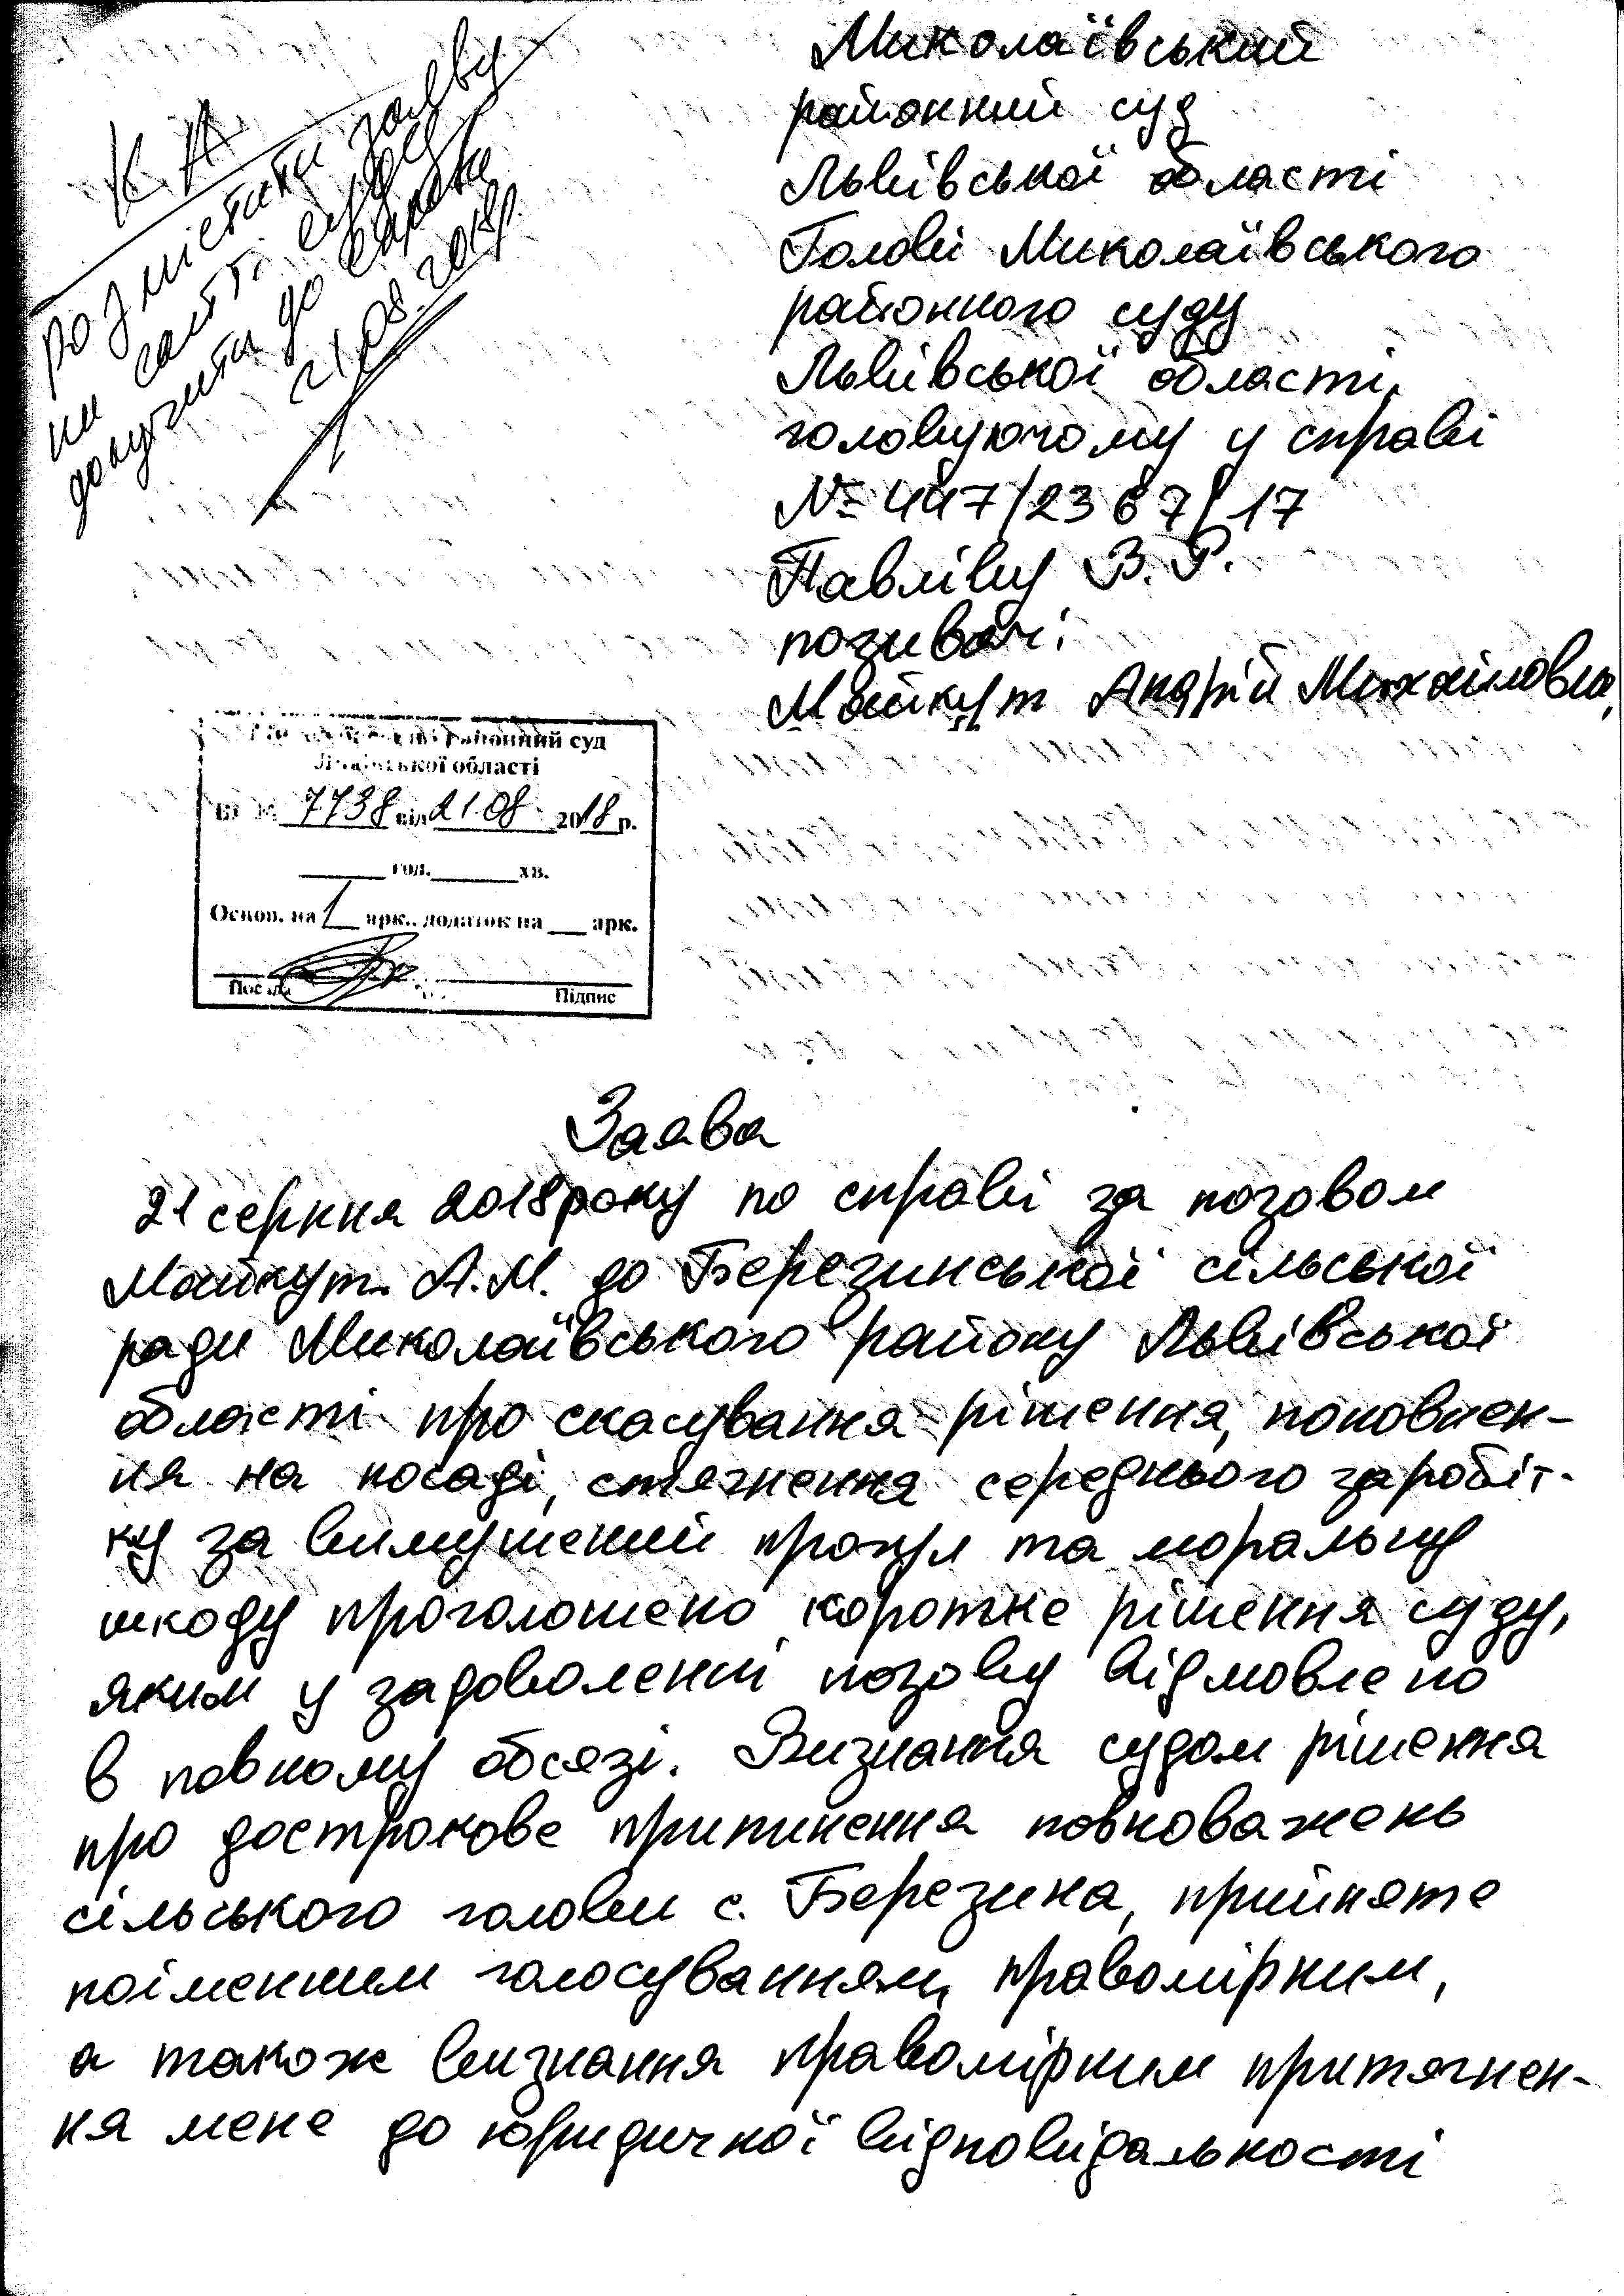 К А
розмістити заяву
на сайті суду
долучити до справи
21.08.2018р.
Миколаївський
районний суд
Львівської області
Голові Миколаївського
районного суду
Львівської області,
головуючому у справі
№ 447/2367/17
Павліву В. Р.
позивач:
Майкут Андрій Михайлович,
районний суд
Львівської області
7738 від 21.08 2018 р.
год. хв.
Основ. на 1 арк., додаток на арк.
Посада Підпис
Заява
21 серпня 2018 року по справі за позовом
Майкут А.М. до Березинської сільської
ради Миколаївського району Львівської
області про скасування рішення, поновлен-
ня на посаді, стягнення середнього заробіт-
ку за вимушений прогул та моральну
шкоду проголошено коротке рішення суду,
яким у задоволенні позову відмовлено
в повному обсязі. Визнання судом рішення
про дострокове припинення повноважень
сільського голови с. Березина, прийняте
поіменним голосуванням, правомірним,
а також визнання правомірним притягнен-
ня мене до юридичної відповідальності